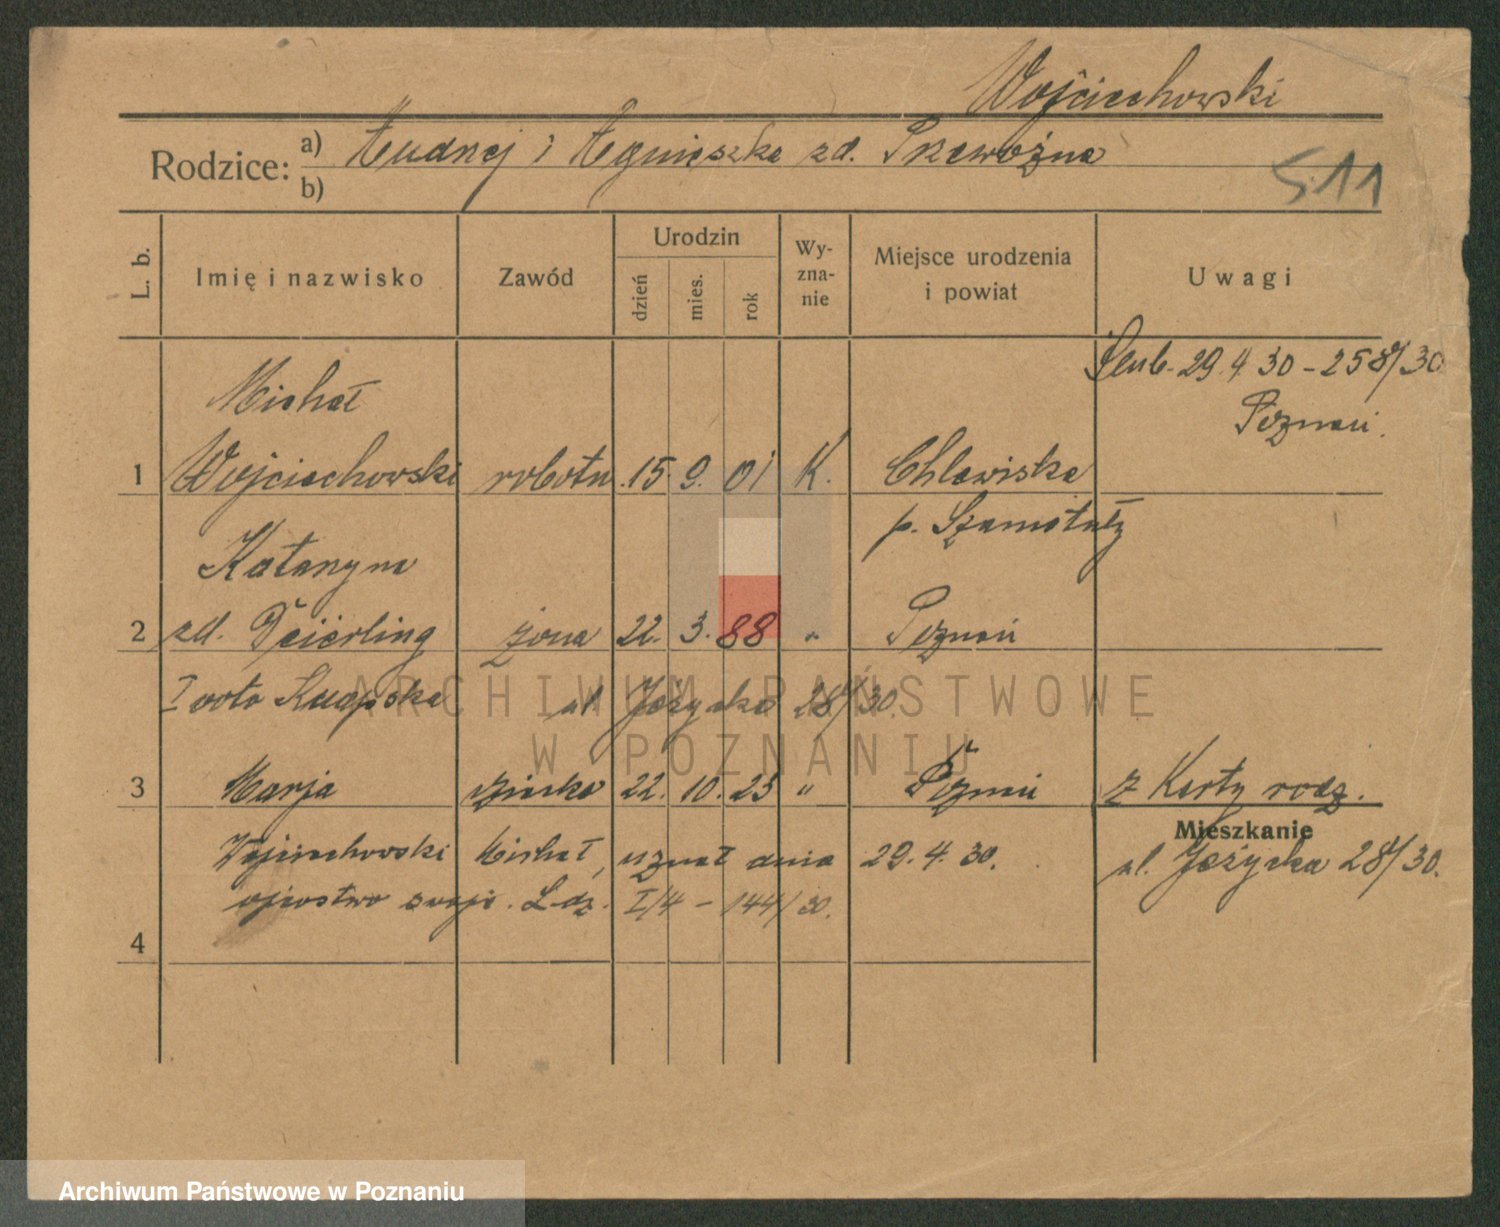 Wojciechowski
Rodzice: a) Andrzej i Agnieszka zd. Przewoźna
b)
511
L. b. Imię i nazwisko Zawód Urodzin dzień mies. rok Wy-zna-nie Miejsce urodzenia i powiat Uwagi
Ślub. 29. 4 30 - 258/30
Michał
Poznań.
1 Wojciechowski robotn. 15. 9. 01 K. Chlewiska
p. Szamotuły
Katarzyna
2 zd. Deierling żona 22. 3. 88 " Poznań
I voto
ul. Jeżycka 28/30.
ARCHIWUM PAŃSTWOWE
W POZNANIU
3 Marja 22. 10. 23 " Poznań z Karty rodz.
Mieszkanie
Wojciechowski Michał, uznał dnia 29. 4. 30. ul. Jeżycka 28/30.
ojcostwo swoje. L. dz. I/4 - 144/30.
4
Archiwum Państwowe w Poznaniu